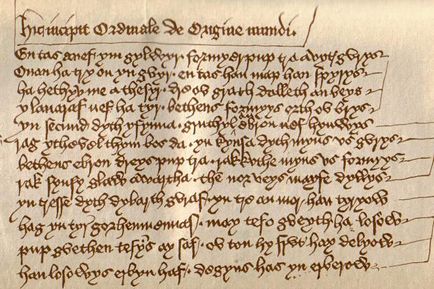 Hic incipit Ordinale de Origine mundi.
En tas a nef ym gylwyr . formyer pup tra a vyt gvrys
Onan ha try on yn gvyr . en tas han map han spyrys
ha hethyw me a thesyr . dre ov grath dalleth an beys
y lavaraf nef ha tyr . bethens formyys orth ov brys
yn secund dyth y fynna . gruthyl ebron nef hynwys
rag ythevel thym bos da . yn kynsa dyth myns vs gvrys
bethens ebron dreys pup tra . rak kuthe myns vs formyys
rak synsy glaw awartha . the norveys may fe dyvys
yn tresse dyth dybarth gvraf . yn tre an mor han tyryow
hag yn tyr gorhenmennas . may tefo gveyth ha losow
pup gvethen tefyns ay saf . ov ton hy frvt hay delyow
han losowys erbyn haf . degyns has yn erberow